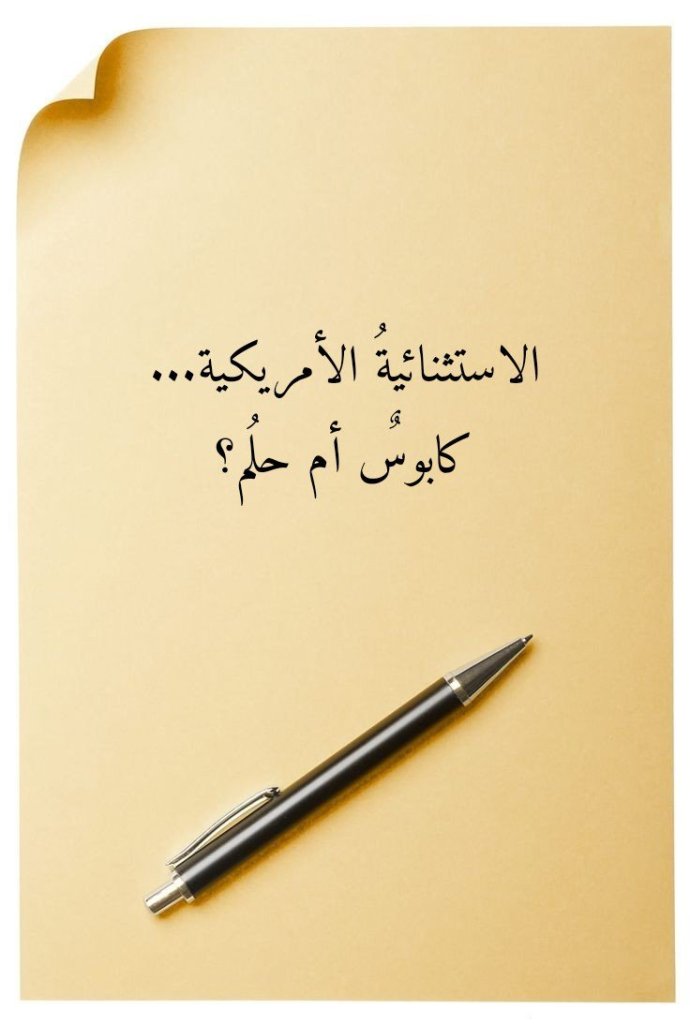 الاستثنائيةُ الأمريكية...
كابوسٌ أم حلُم؟